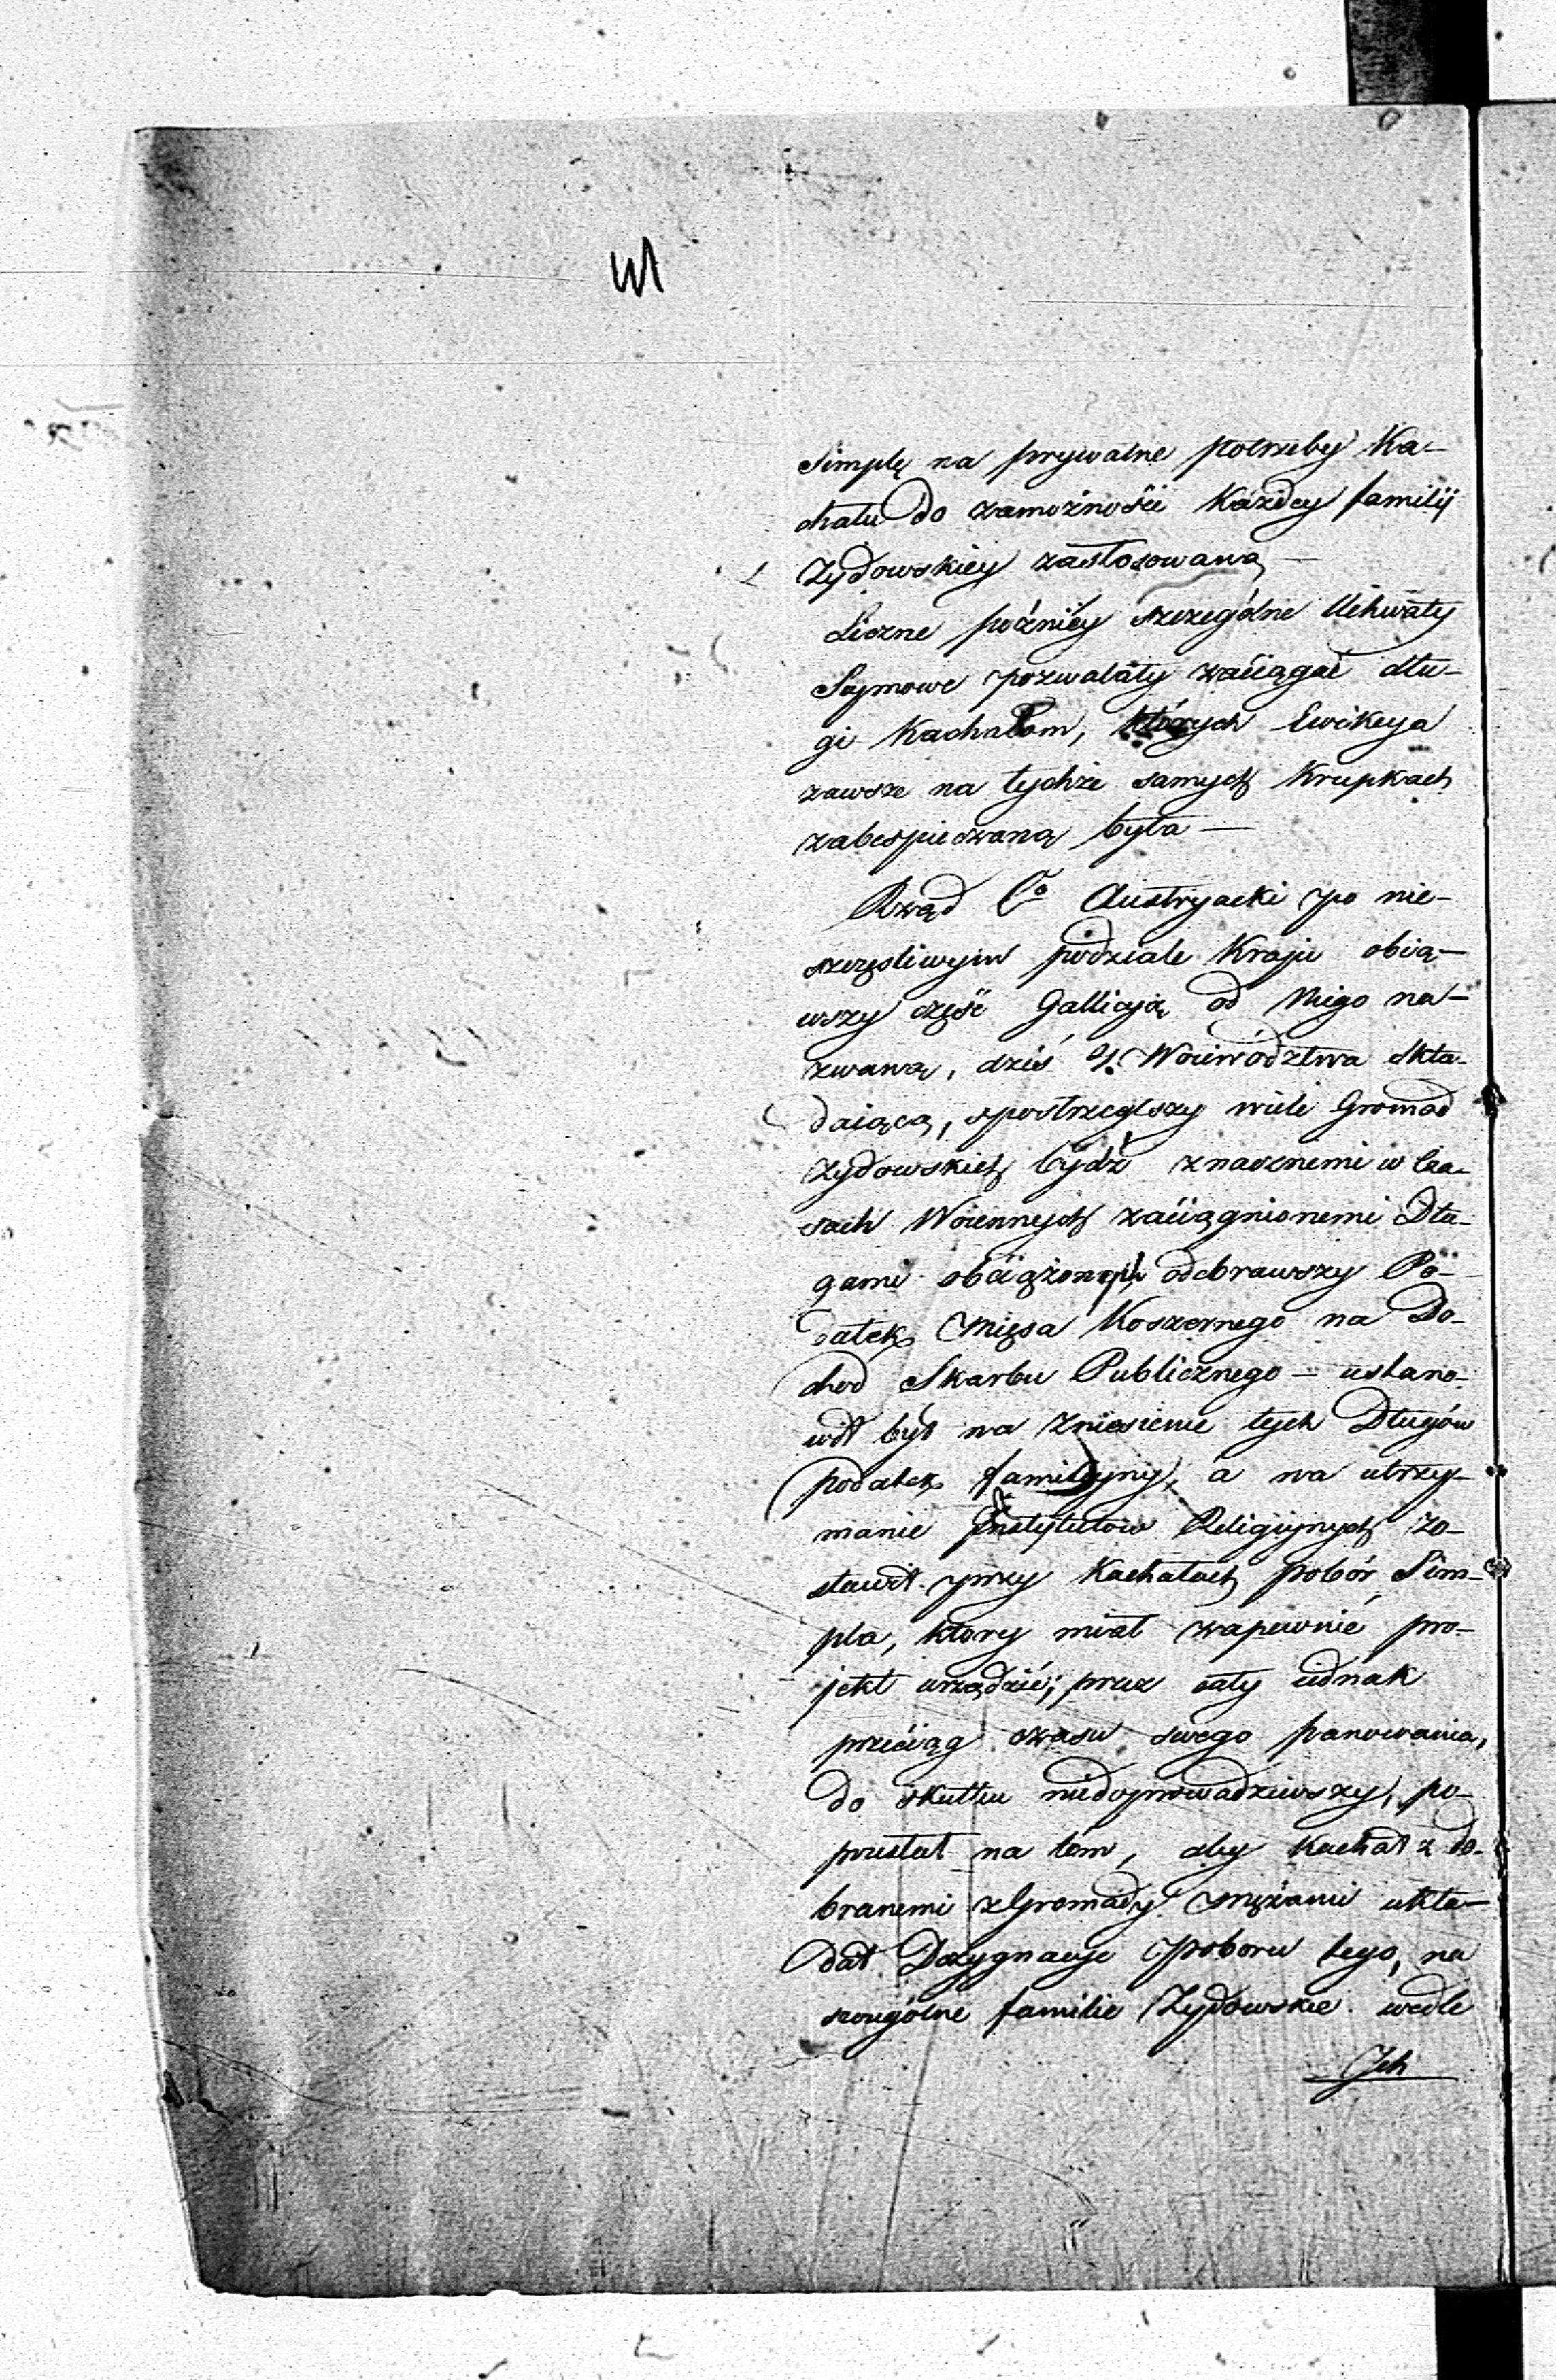 Simplę na prywatne potrzeby Ka-
chału do zamożności Każdey familij
Żydowskiey zastosowaną —
Liczne późniey szczególne Uchwały
Seymowe pozwalały zaciągać dłu-
gi Kachałom, których Ewikcya
zawsze na tychże samych Krupkach
zabespieczoną była —
Rząd Co Austryacki po nie-
szczęśliwym podziale Kraju obią-
wszy część Gallicyą od Niego na-
zwaną, dziś 4. Woiewództwa skła-
daiącą, spostrzegłszy wiele Gromad
żydowskich bydź znacznemi w cza-
sach Woiennych zaciągnionemi Dłu-
gami obciążonych odebrawszy Po-
datek Mięsa Koszernego na Do-
chód Skarbu Publicznego — ustano-
wił był na Zniesienie tych Długów
podatek familiyny, a na utrzy-
manie Instytutów Religiynych zo-
stawił przy Kachałach pobór Sim-
pla, ktory miał zapewnić pro-
jekt urządzić; przez cały iednak
przeciąg czasu swego panowania,
do skutku niedoprowadziwszy, po-
przestał na tém, aby Kachał z do-
branemi z Gromady mężami ukła-
dał Dezygnacye poboru tego, na
szczególne familie Żydowskie wedle
Jch